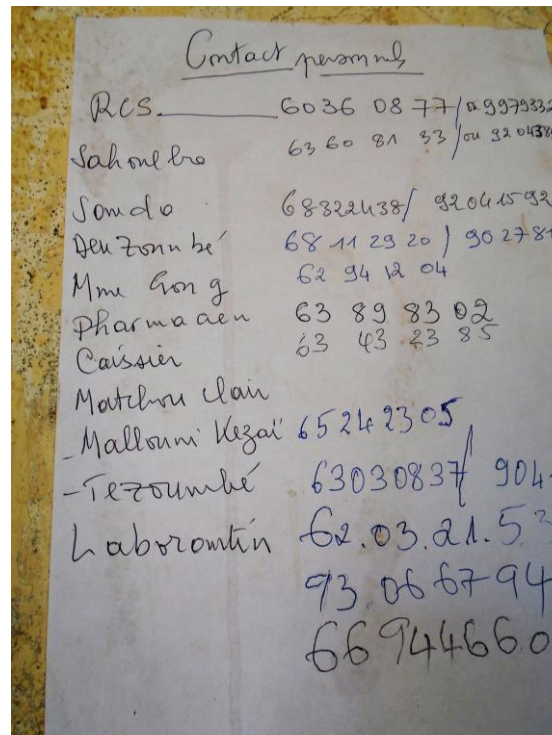 Contact personnels
RCS. 6036 08 77/ou 9979332
Sahoulba 63 60 81 33/ou 920438
Somdo 68322438/ 92041592
Deuzoumbé 68 11 29 20/ 902781
Mme Gong 62 94 12 04
Pharmacien 63 89 83 02
Caissier 63 43 23 85
Matchou clair
-Malloumi Kezaï 65242305
-Tezoumbé 63030837/ 904
Laborontin 62.03.21.53
93.066794
66944660